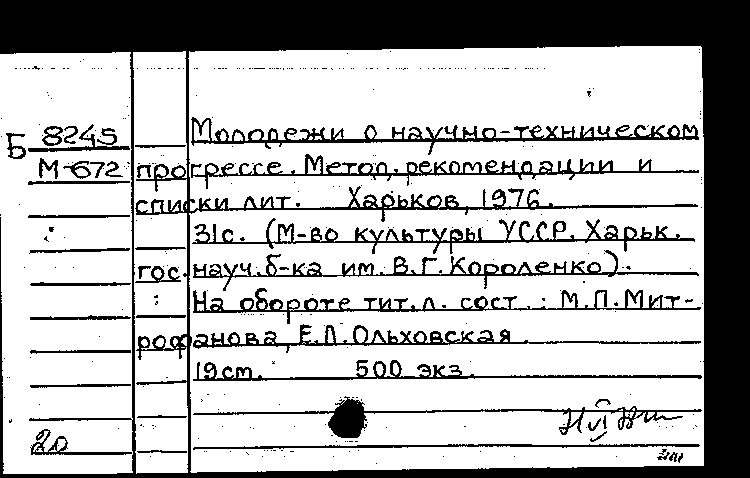 Б 8245 Молодежи о научно-техническом
М-672 прогрессе. Метод. рекомендации и
списки лит. Харьков, 1976.
31с. (М-во культуры УССР. Харьк.
гос. науч. б-ка им. В.Г. Короленко).
На обороте тит.л. сост.: М.П.Мит-
рофанова, Е.Л.Ольховская.
19см. 500 экз.
20